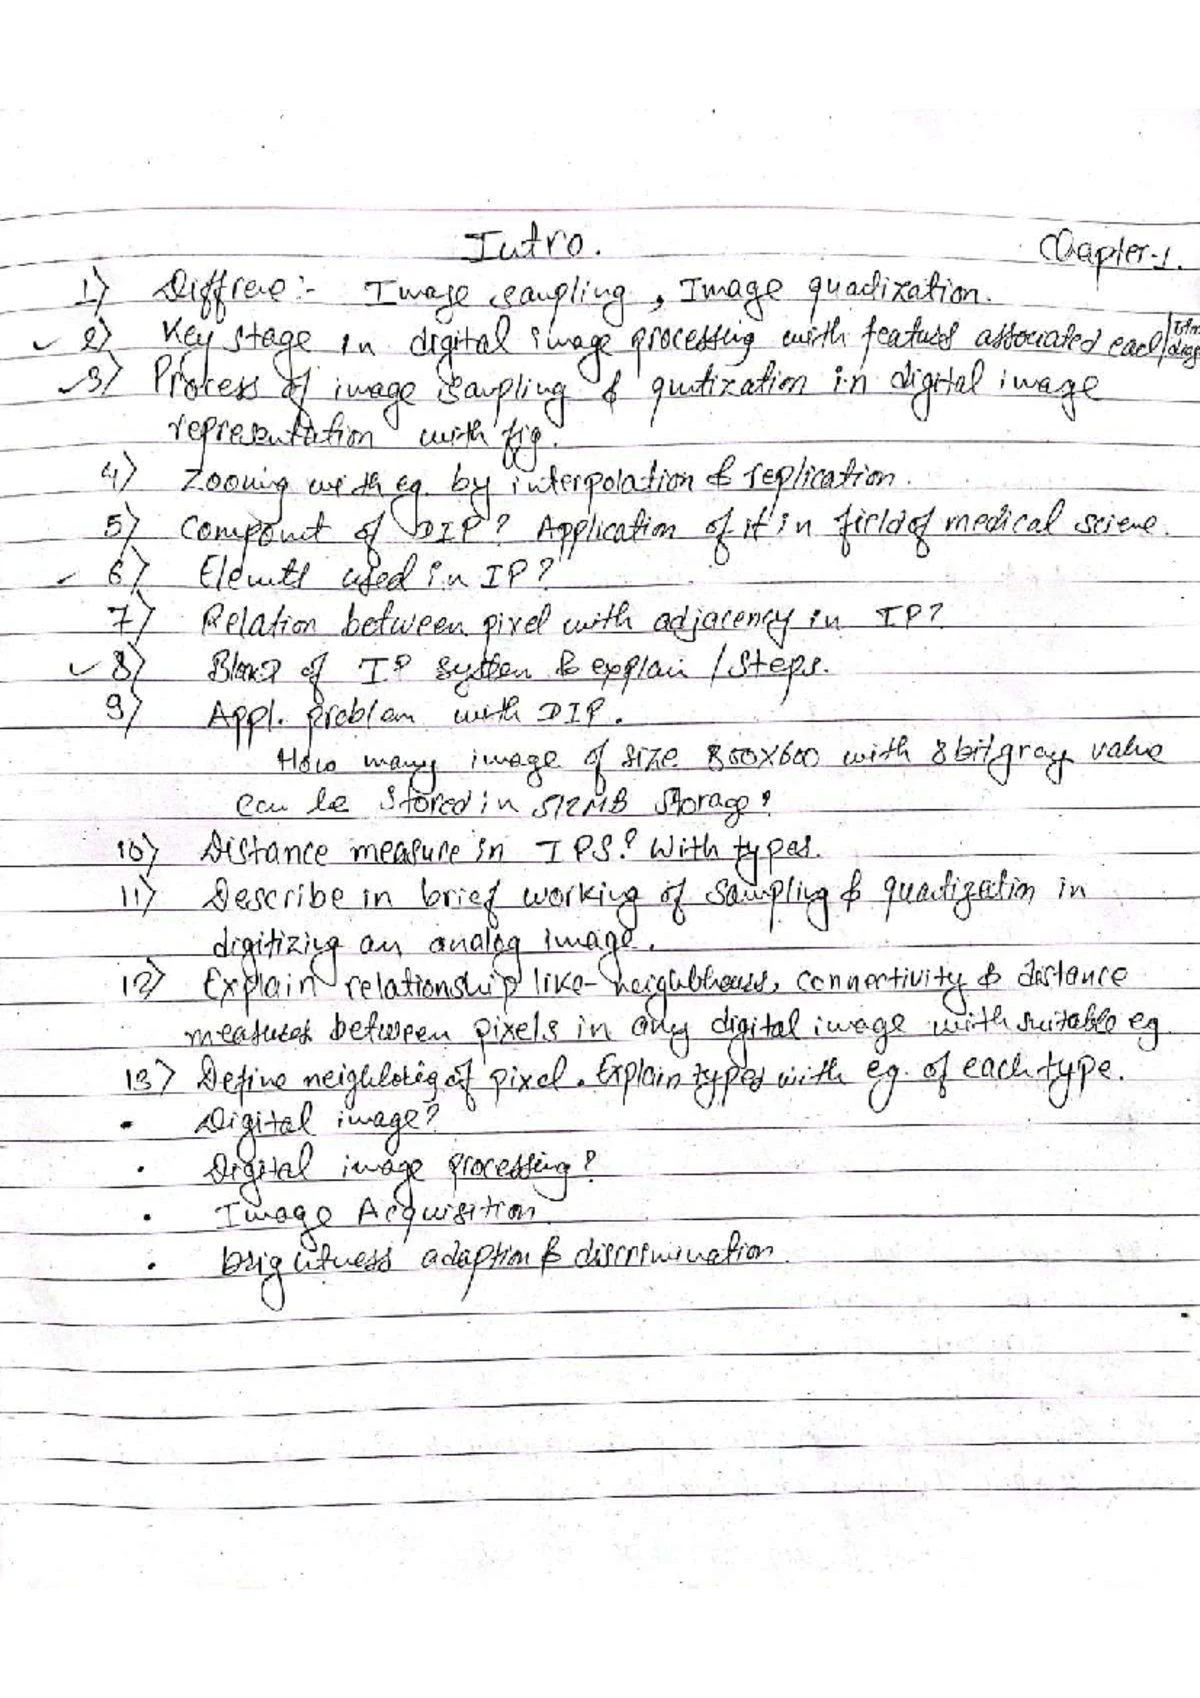 Intro.
Chapter-1.
1) Diffrene:- Image sampling, Image quatization.
2) Key stage in digital image processing with featues associated each
3) Process of image sampling & qutization in digital image
representation with fig.
4) Zooming with eg. by interpolation & replication.
5) Component of DIP? Application of it in field of medical sciene.
6) Elemts used in IP?
7) Relation between pixel with adjacency in IP?
8) Block of IP system & explain / steps.
9) Appl. problem with DIP.
How many image of size 800x600 with 8bit gray value
can be stored in 512MB storage?
10) Distance measure in IPS? With types.
11) Describe in brief working of sampling & quatization in
digitizing an analog image.
12) Explain relationship like- neighbhours, connectivity & distance
measures between pixels in any digital image with suitable eg.
13) Define neighboring of pixel. Explain types with eg. of each type.
• Digital image?
• Digital image processing?
• Image Acquisition
• brightness adaption & discrimination.